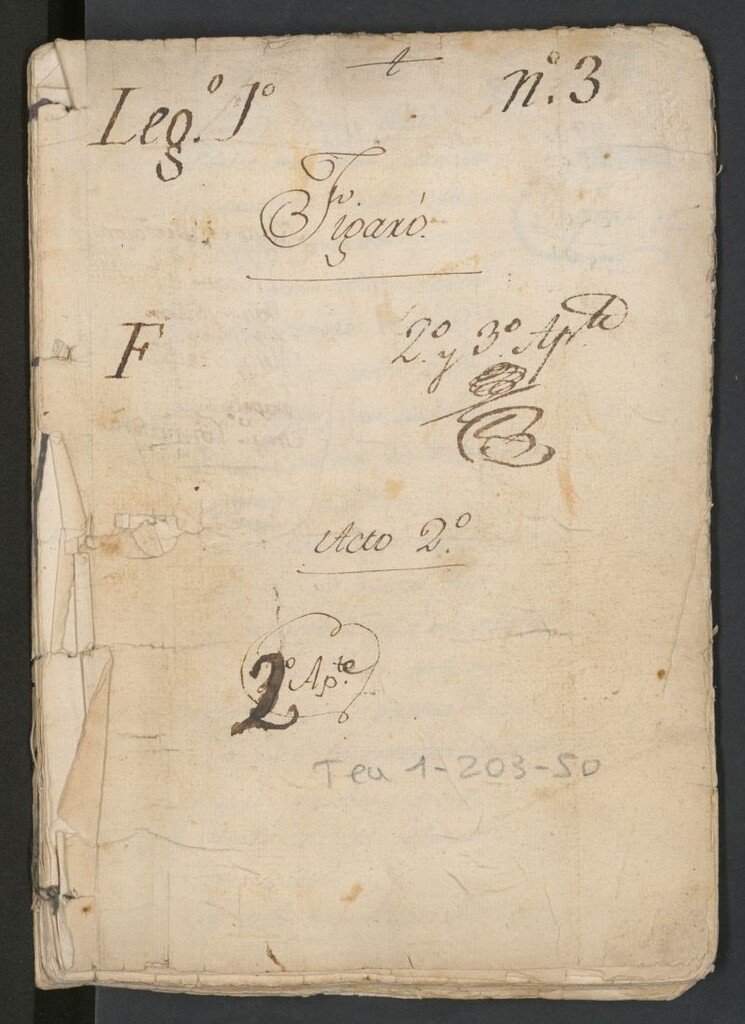 Leg.º 1º nº. 3
Figaró.
F 2.º y 3.º Ap.te
Acto 2.º
2º Ap.te
Tea 1-203-50